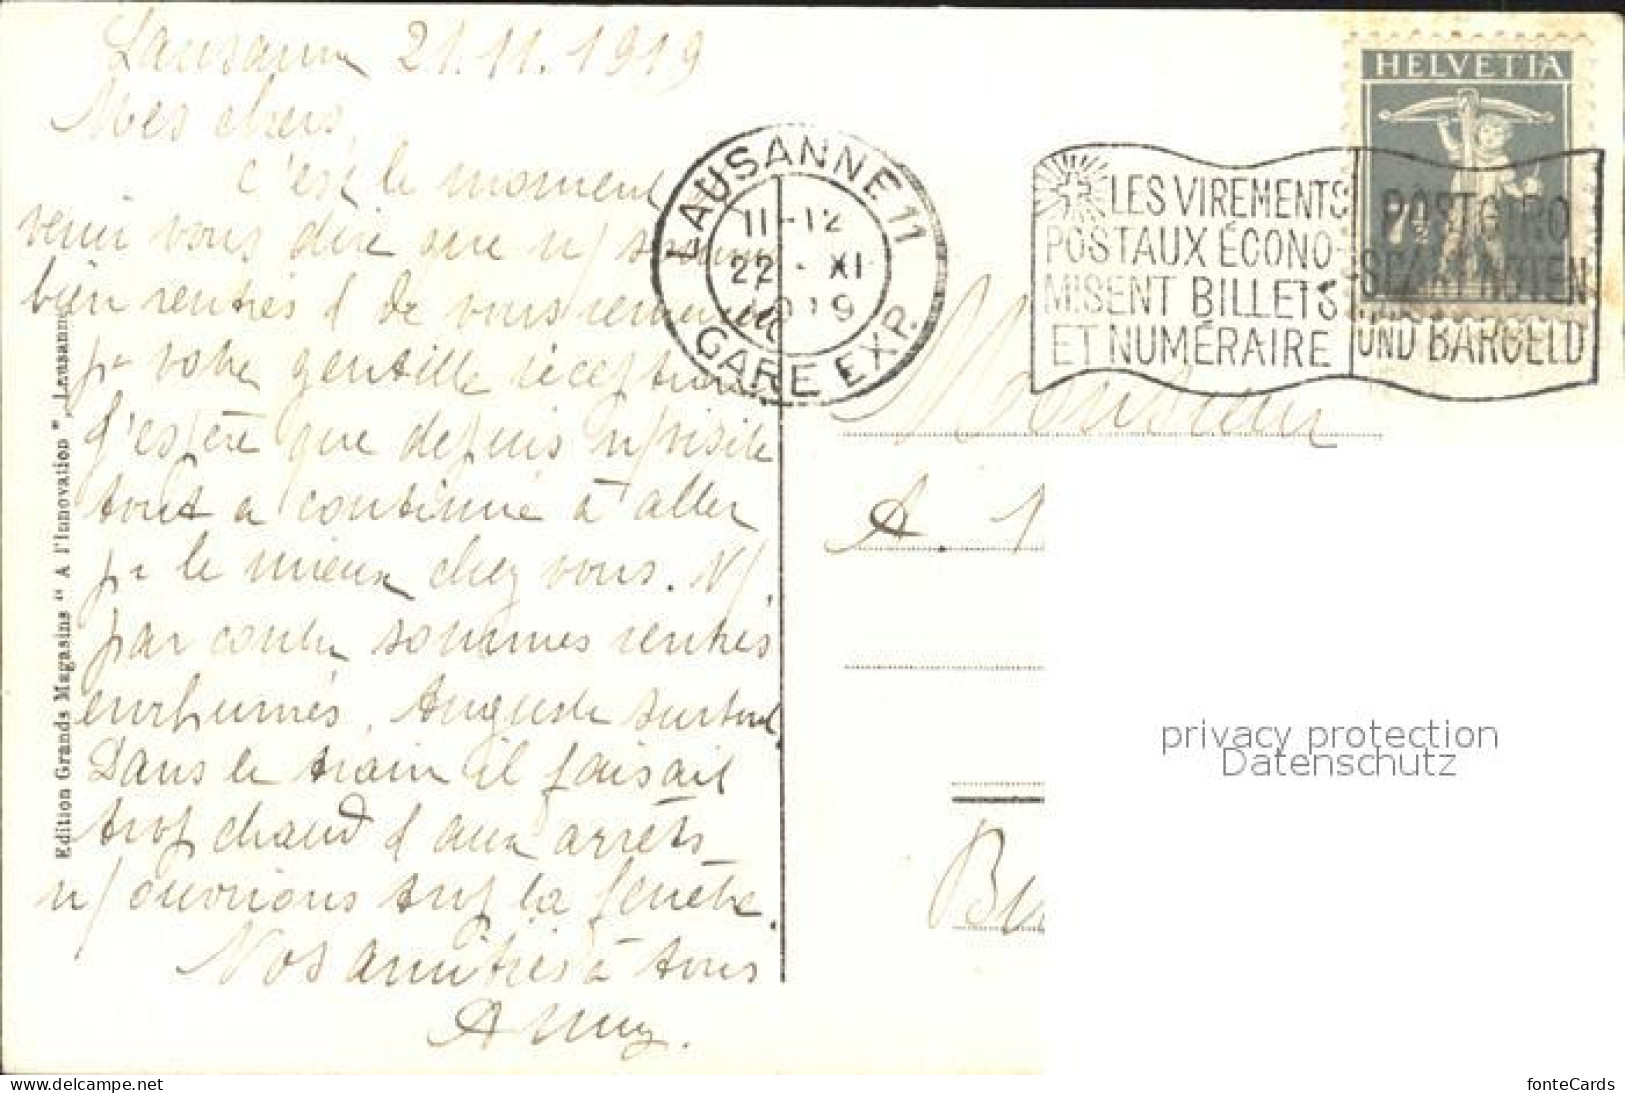 Lausanne 21.11.1919
Mes chers,
c'est le moment
venir vous dire que n/ sommes
bien rentrés & de vous remercier
pr votre gentille réception
J'espère que depuis n/ visite
tout a continué à aller
pr le mieux chez vous. N/
par contre sommes rentrés
enrhumés, Auguste surtout.
Dans le train il faisait
trop chaud & aux arrêts
n/ ouvrions trop la fenêtre.
Nos amitiés à tous
Edition Grands Magasins "A l'Innovation", Lausanne
LAUSANNE 11
11-12
22 · XI
1919
GARE EXP.
LES VIREMENTS
POSTAUX ÉCONO-
MISENT BILLETS
ET NUMÉRAIRE
POSTGIRO
SPART NOTEN
UND BARGELD
HELVETIA
7½
Monsieur
A.
privacy protection
Datenschutz
www.delcampe.net
fonteCards